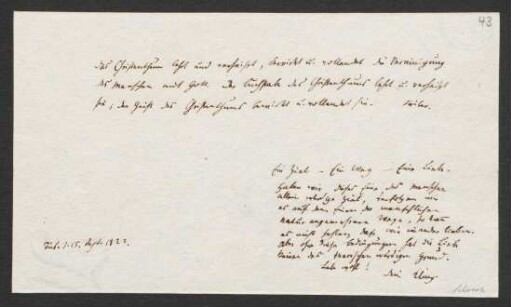 43
Das Christenthum lehrt und verheißt, bereitet u. vollendet die Vereinigung
des Menschen mit Gott. Der Buchstabe des Christenthums lehrt u. verheißt
sie, der Geist des Christenthums bereitet u. vollendet sie. Sailer.
Ein Ziel – Ein Weg – Eine Liebe.
Haben wir dieses Eine, des Menschen
allein würdige Ziel, verfolgen wir
es auf dem Einen der menschlichen
Natur angemessenen Wege, so kann
es nicht fehlen, daß wir einander lieben.
Aber ohne diese Bedingungen hat die Liebe
keinen des Menschen würdigen Grund.
Lebe wohl!
Tüb. d. 15. Sept. 1822.
Dein